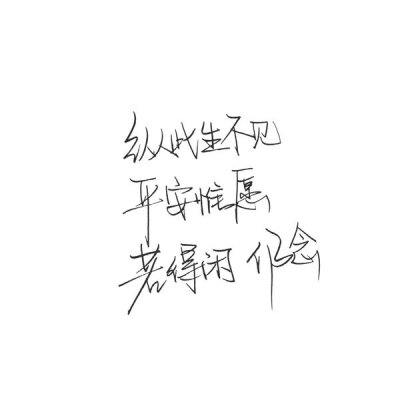 纵此生不见
平安惟愿
若得闲 仍念